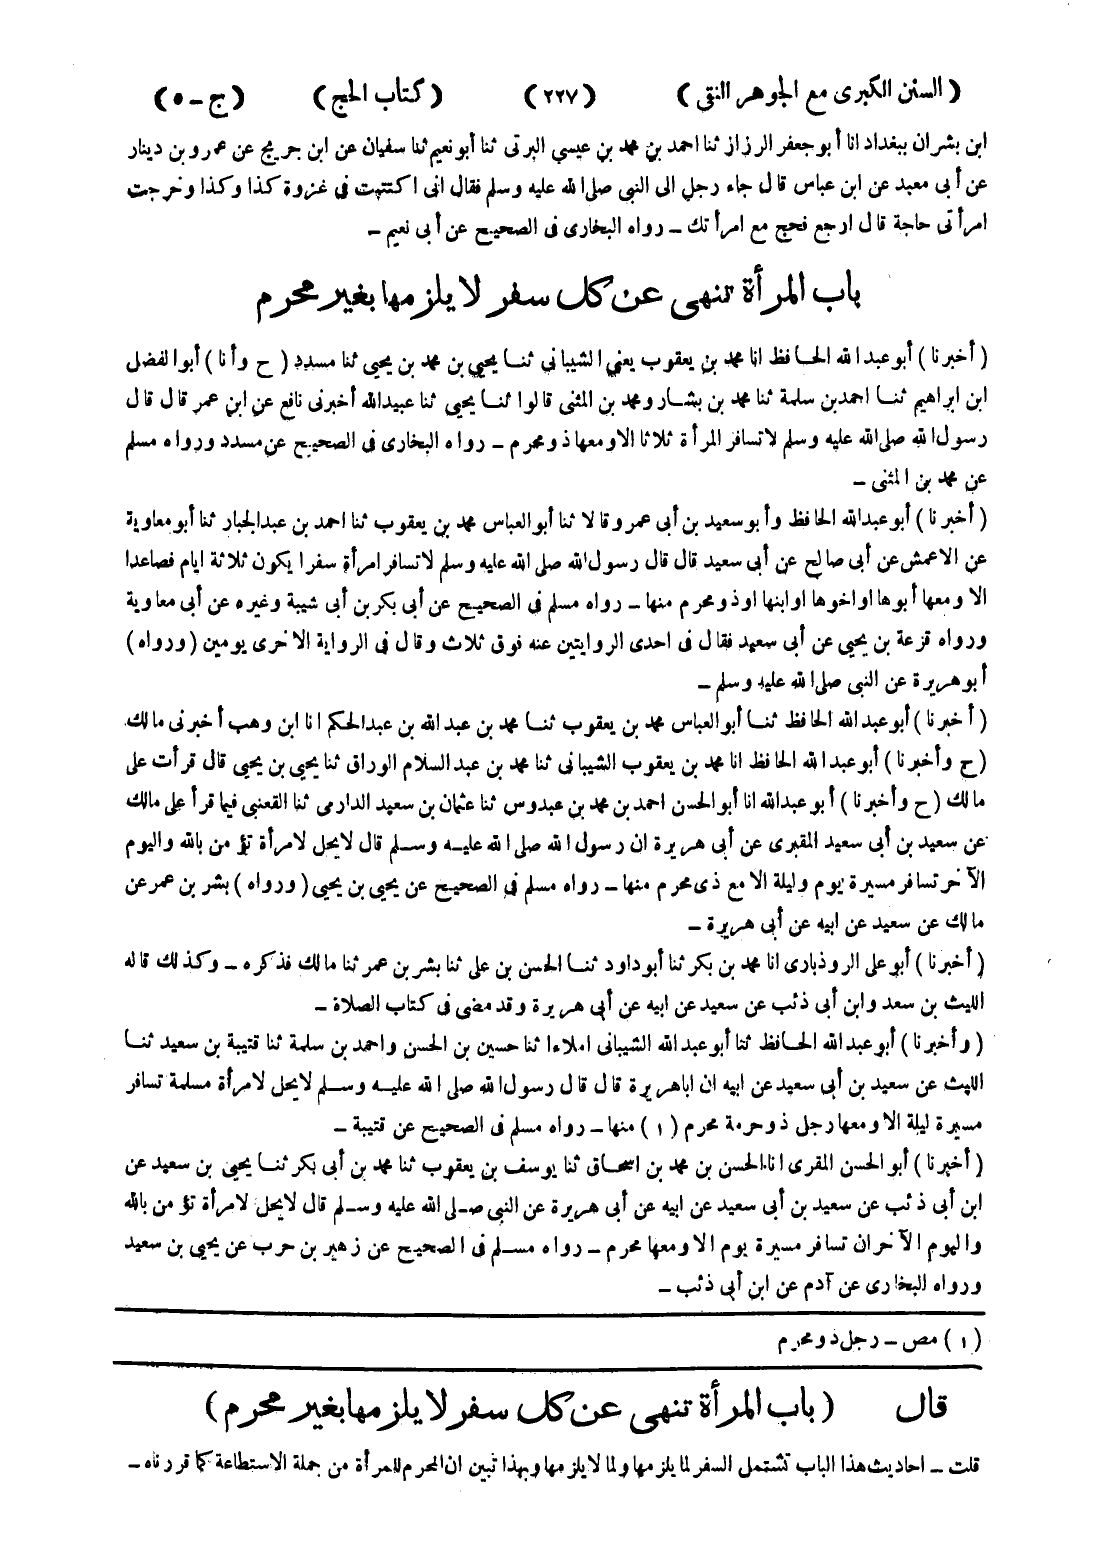 ( السنن الكبرى مع الجوهر النقى ) ( ٢٢٧ ) ( كتاب الحج ) ( ج ـ ٥ )
ابن بشران ببغداد انا أبو جعفر الرزاز ثنا احمد بن محمد بن عيسى البرتى ثنا أبو نعيم ثنا سفيان عن ابن جريج عن عمرو بن دينار
عن أبى معبد عن ابن عباس قال جاء رجل الى النبى صلى الله عليه وسلم فقال انى اكتتبت فى غزوة كذا وكذا وخرجت
امرأتى حاجة قال ارجع فحج مع امرأتك ـ رواه البخارى فى الصحيح عن أبى نعيم ـ
باب المرأة تنهى عن كل سفر لا يلزمها بغير محرم
( أخبرنا ) أبو عبد الله الحافظ انا محمد بن يعقوب يعنى الشيبانى ثنا يحيى بن محمد بن يحيى ثنا مسدد ( ح وأنا ) أبو الفضل
ابن ابراهيم ثنا احمد بن سلمة ثنا محمد بن بشار ومحمد بن المثنى قالوا ثنا يحيى ثنا عبيد الله أخبرنى نافع عن ابن عمر قال قال
رسول الله صلى الله عليه وسلم لا تسافر المرأة ثلاثا الا ومعها ذو محرم ـ رواه البخارى فى الصحيح عن مسدد ورواه مسلم
عن محمد بن المثنى ـ
( أخبرنا ) أبو عبد الله الحافظ وأبو سعيد بن أبى عمرو قالا ثنا أبو العباس محمد بن يعقوب ثنا احمد بن عبد الجبار ثنا أبو معاوية
عن الاعمش عن أبى صالح عن أبى سعيد قال قال رسول الله صلى الله عليه وسلم لا تسافر امرأة سفرا يكون ثلاثة ايام فصاعدا
الا ومعها أبوها او اخوها او ابنها او ذو محرم منها ـ رواه مسلم فى الصحيح عن أبى بكر بن أبى شيبة وغيره عن أبى معاوية
ورواه قزعة بن يحيى عن أبى سعيد فقال فى احدى الروايتين عنه فوق ثلاث وقال فى الرواية الاخرى يومين ( ورواه )
أبو هريرة عن النبى صلى الله عليه وسلم ـ
( أخبرنا ) أبو عبد الله الحافظ ثنا أبو العباس محمد بن يعقوب ثنا محمد بن عبد الله بن عبد الحكم انا ابن وهب أخبرنى مالك
( ح وأخبرنا ) أبو عبد الله الحافظ انا محمد بن يعقوب الشيبانى ثنا محمد بن عبد السلام الوراق ثنا يحيى بن يحيى قال قرأت على
مالك ( ح وأخبرنا ) أبو عبد الله انا أبو الحسن احمد بن محمد بن عبدوس ثنا عثمان بن سعيد الدارمى ثنا القعنبى فيما قرأ على مالك
عن سعيد بن أبى سعيد المقبرى عن أبى هريرة ان رسول الله صلى الله عليه وسلم قال لا يحل لامرأة تؤمن بالله واليوم
الآخر تسافر مسيرة يوم وليلة الا مع ذى محرم منها ـ رواه مسلم فى الصحيح عن يحيى بن يحيى ( ورواه ) بشر بن عمر عن
مالك عن سعيد عن ابيه عن أبى هريرة ـ
( أخبرنا ) أبو على الروذبارى انا محمد بن بكر ثنا أبو داود ثنا الحسن بن على ثنا بشر بن عمر ثنا مالك فذكره ـ وكذلك قاله
الليث بن سعد وابن أبى ذئب عن سعيد عن ابيه عن أبى هريرة وقد مضى فى كتاب الصلاة ـ
( وأخبرنا ) أبو عبد الله الحافظ ثنا أبو عبد الله الشيبانى املاء ا ثنا حسين بن الحسن واحمد بن سلمة ثنا قتيبة بن سعيد ثنا
الليث عن سعيد بن أبى سعيد عن ابيه ان ابا هريرة قال قال رسول الله صلى الله عليه وسلم لا يحل لامرأة مسلمة تسافر
مسيرة ليلة الا ومعها رجل ذو حرمة محرم ( ١ ) منها ـ رواه مسلم فى الصحيح عن قتيبة ـ
( أخبرنا ) أبو الحسن المقرى انا الحسن بن محمد بن اسحاق ثنا يوسف بن يعقوب ثنا محمد بن أبى بكر ثنا يحيى بن سعيد عن
ابن أبى ذئب عن سعيد بن أبى سعيد عن ابيه عن أبى هريرة عن النبى صلى الله عليه وسلم قال لا يحل لامرأة تؤمن بالله
واليوم الآخر ان تسافر مسيرة يوم الا ومعها محرم ـ رواه مسلم فى الصحيح عن زهير بن حرب عن يحيى بن سعيد
ورواه البخارى عن آدم عن ابن أبى ذئب ـ
( ١ ) مص ـ رجل ذو محرم
قال ( باب المرأة تنهى عن كل سفر لا يلزمها بغير محرم )
قلت ـ احاديث هذا الباب تشتمل السفر لما يلزمها ولما لا يلزمها وبهذا تبين ان المحرم للمرأة من جملة الاستطاعة كما قررناه ـ